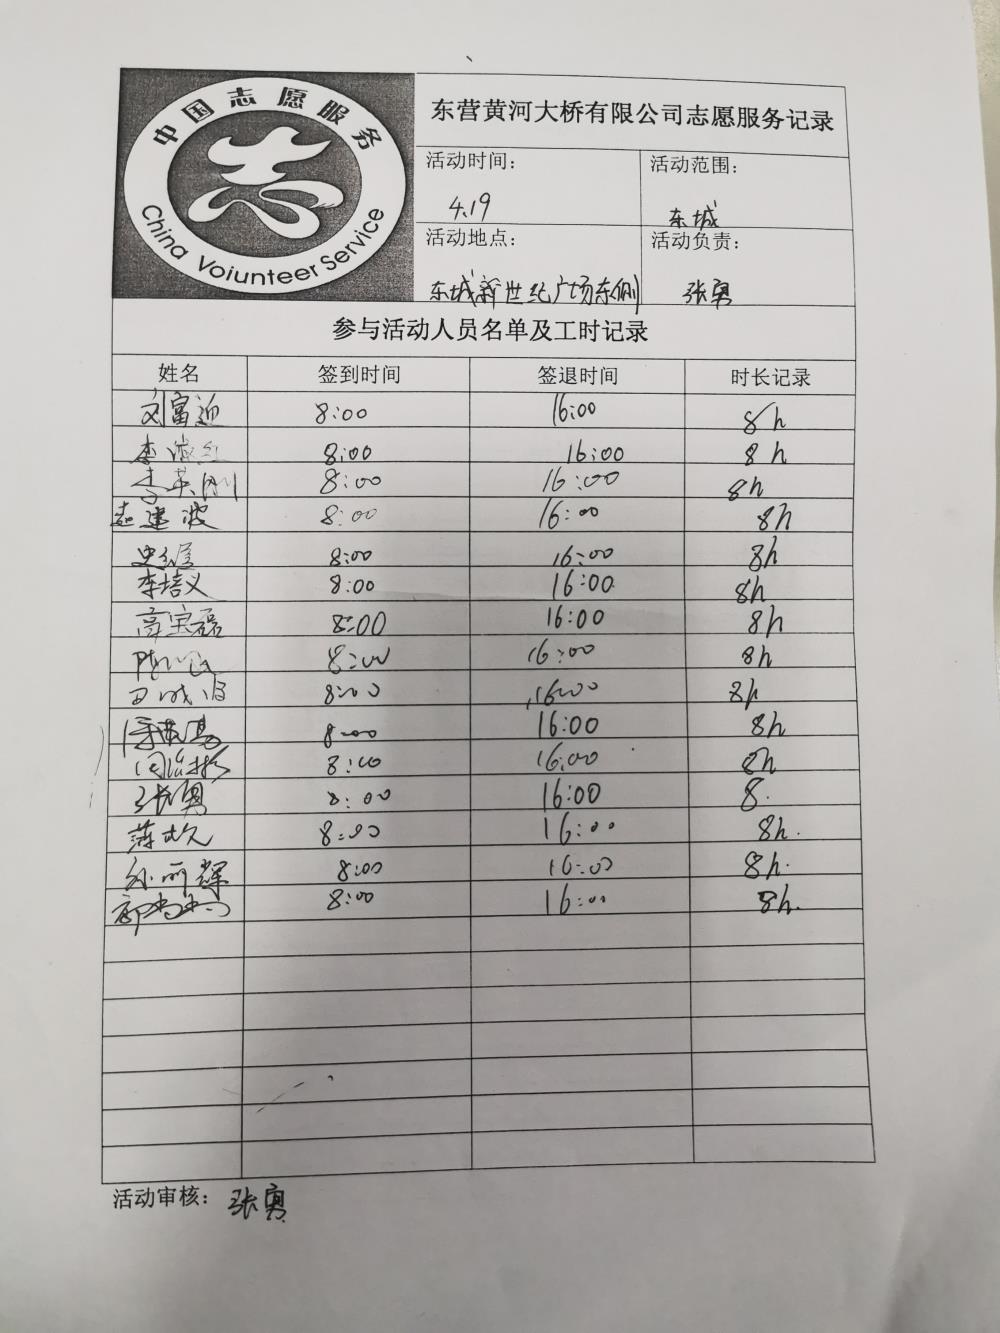 中国志愿服务
China Voiunteer Service
东营黄河大桥有限公司志愿服务记录
活动时间： 活动范围：
4.19 东城
活动地点： 活动负责：
东城新世纪广场东侧 张勇
参与活动人员名单及工时记录
姓名 签到时间 签退时间 时长记录
刘富迎 8:00 16:00 8h
李 8:00 16:00 8h
李英刚 8:00 16:00 8h
赵建波 8:00 16:00 8h
史 8:00 16:00 8h
李培义 8:00 16:00 8h
高宝磊 8:00 16:00 8h
陈 8:00 16:00 8h
8:00 16:00 8h
8:00 16:00 8h
8:00 16:00 8h
张勇 8:00 16:00 8.
薄 8:00 16:00 8h.
孙丽辉 8:00 16:00 8h.
8:00 16:00 8h.
活动审核： 张勇